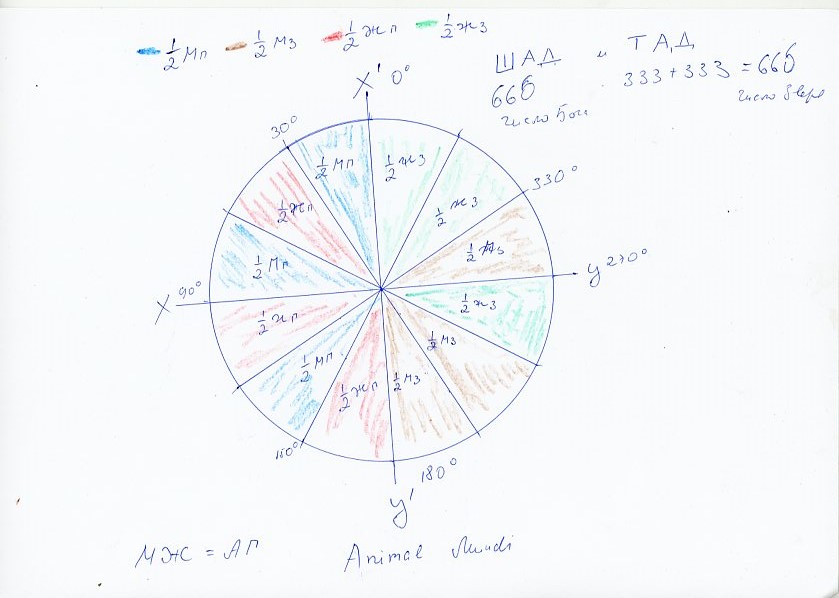 ½ Мп ½ Мз ½ Жп ½ Жз
ШАД и ТАД
666 333 + 333 = 666
число Бога число Зверя
X' 0°
30°
½ Мп
½ Жз
½ Жп
½ Жз
330°
½ Мп
½ Мз
X 90°
У 270°
½ Жп
½ Жз
½ Мп
½ Мз
½ Жп
½ Мз
150°
180°
У'
МЖ = АП Animal Mundi